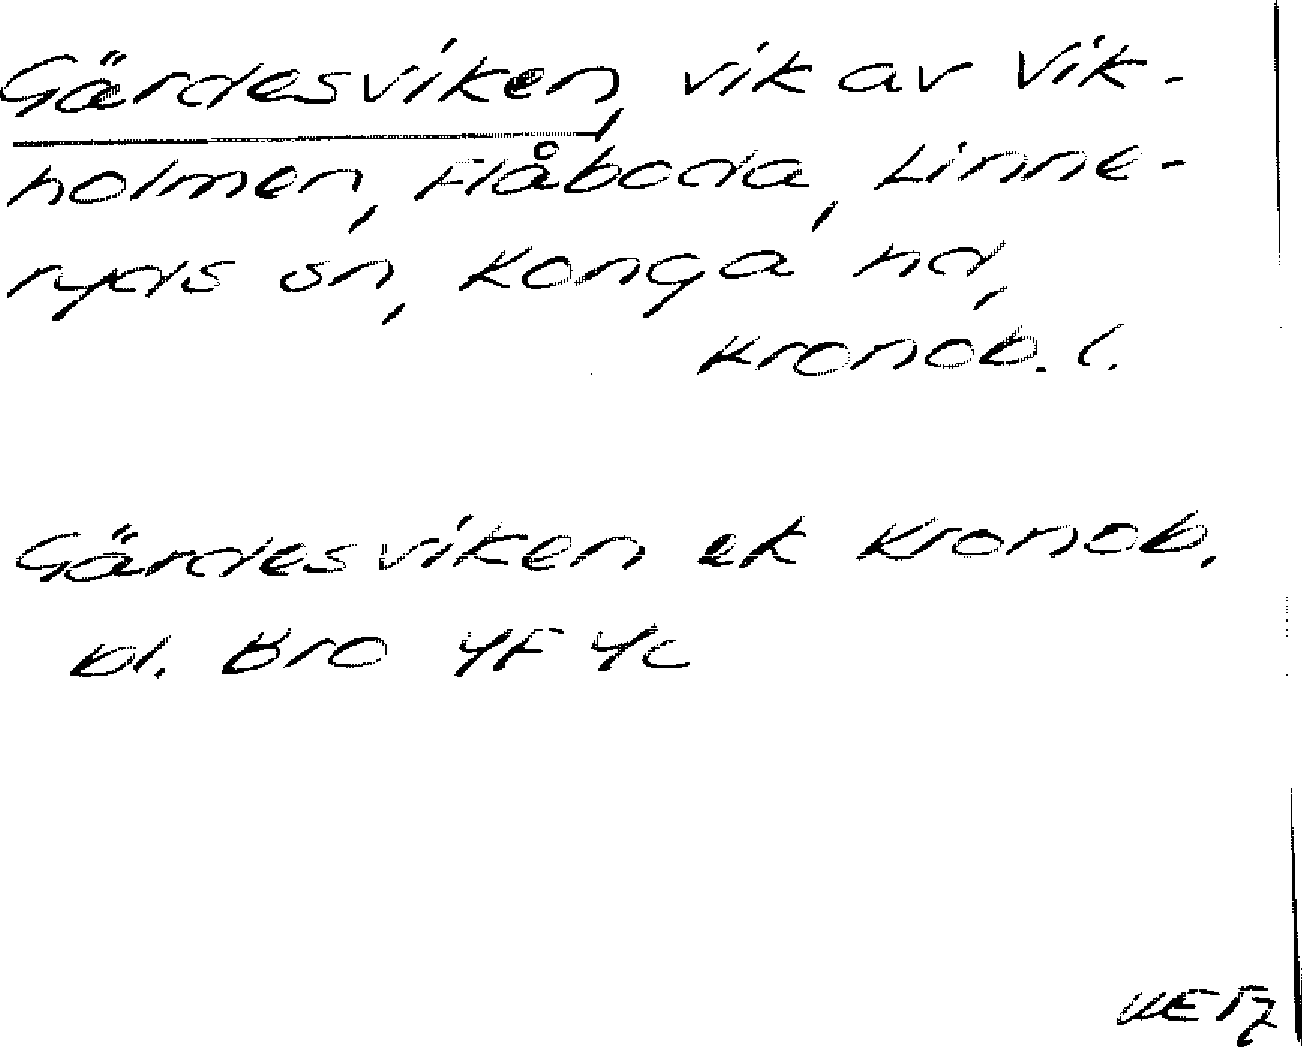 Gärdesviken, vik av Vik-
holmen, Flåboda, Linne-
ryds sn, Konga hd,
Kronob. l.
Gärdesviken ek Kronob.
bl. Bro 4F 4c